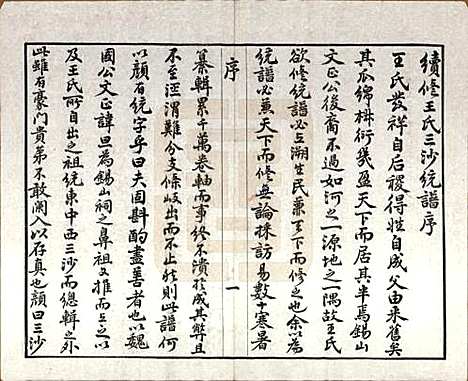 續修王氏三沙統譜序
王氏發祥自后稷得姓自成父由來舊矣
其瓜綿椒衍幾盈天下而居其半焉錫山
文正公後裔不過如河之一源地之一隅故王氏
欲修統譜必上溯生民兼天下而修之也余以為
統譜必兼天下而修無論採訪易數十寒暑
序
一
纂輯累千萬卷軸而事終不潰於成其弊且
不至涇渭難分支條岐出而不止然則此譜何
以顏有統字乎曰夫固斟酌盡善者也以魏
國公文正諱旦為錫山祠之鼻祖又推而上之以
及王氏所自出之祖統東中西三沙而總輯之外
此雖有豪門貴第不敢闌入以存真也顏曰三沙